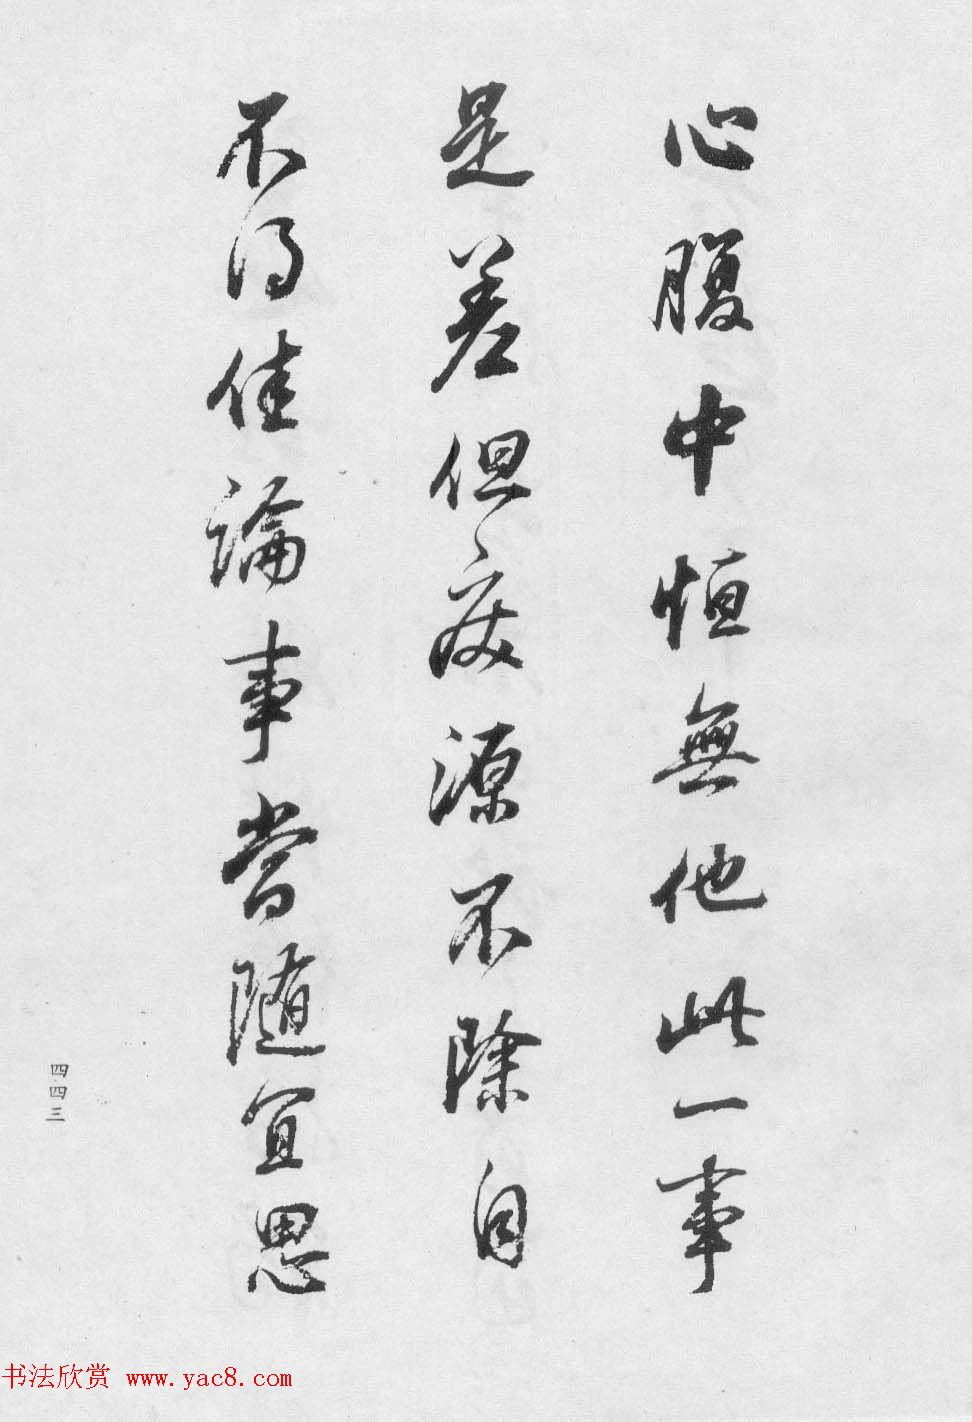 心腹中恒無他此一事
是差但疾源不除自
不得佳論事當随宜思
四四三
书法欣赏 www.yac8.com